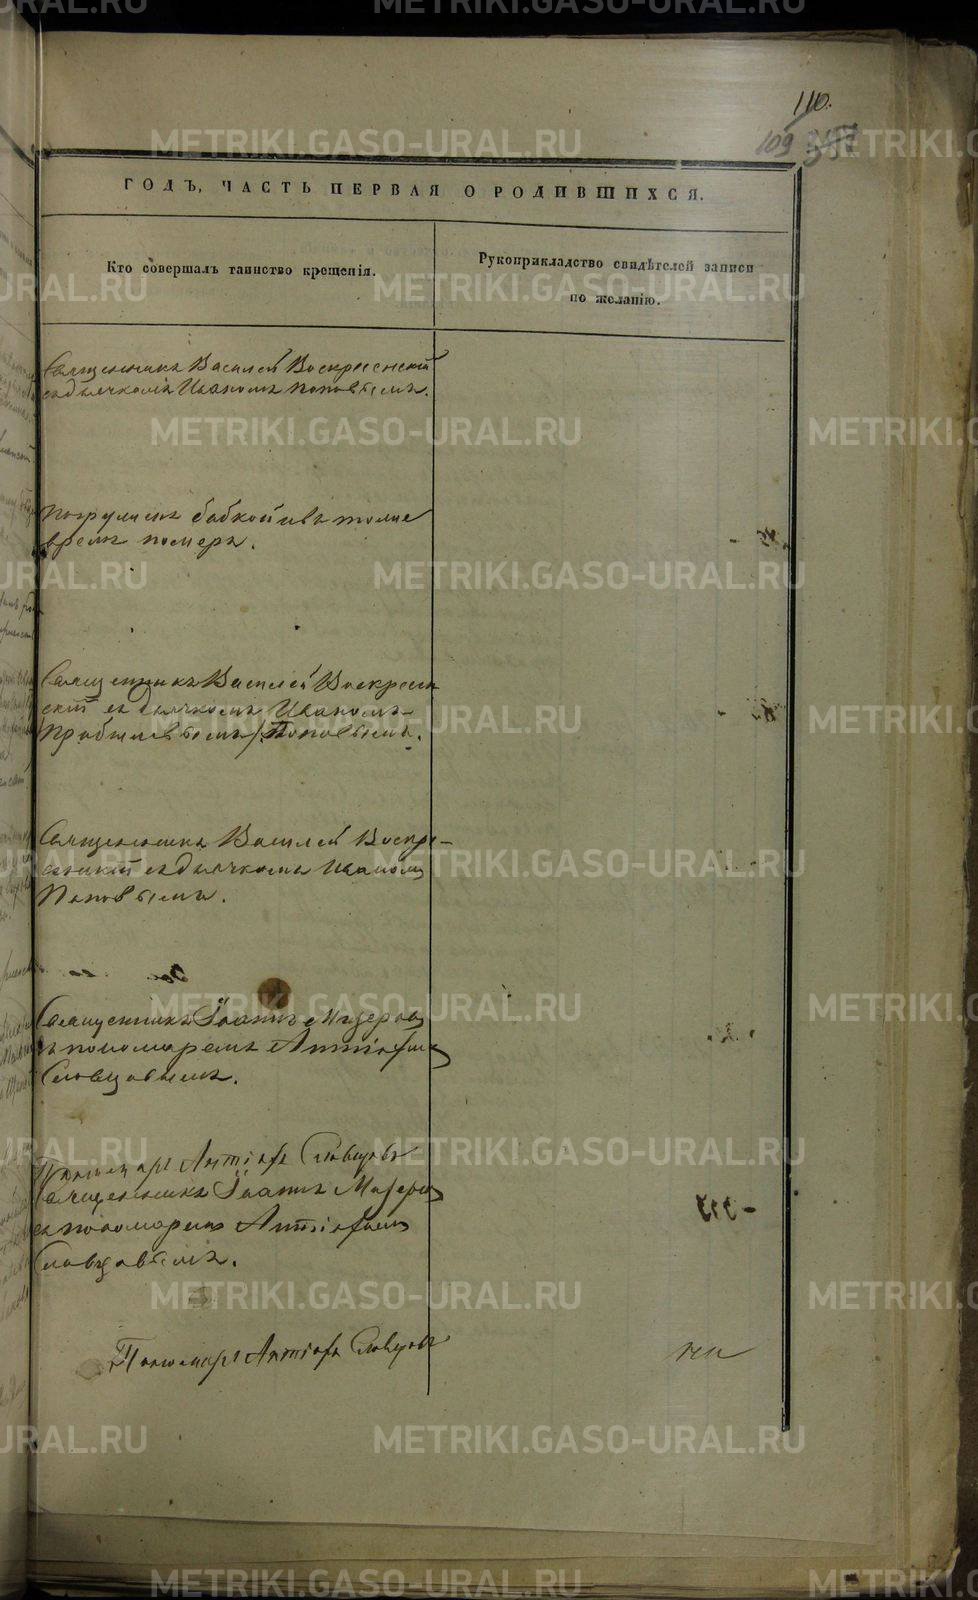 110.
109
ГОДЪ, ЧАСТЬ ПЕРВАЯ О РОДИВШИХСЯ.
Кто совершалъ таинство крещенія.
Рукоприкладство свидѣтелей записи
по желанію.
Священникъ Василей Воскресенскій
съ дьячкомъ Иваномъ Поповымъ.
Погружонъ бабкой и въ тоже
время померъ.
Священникъ Василей Воскресен
скій съ дьячкомъ Иваномъ
Поповымъ.
Священникъ Василей Воскре-
сенскій съ дьячкомъ Иваномъ
Поповымъ.
Священникъ Іоаннъ Мизеровъ
съ пономаремъ Антіофимъ
Словцовымъ.
Пономарь Антіофъ Словцовъ
Священникъ Іоаннъ Мизеровъ
съ пономаремъ
Словцовымъ.
Пономарь Антіофъ Словцовъ
METRIKI.GASO-URAL.RU